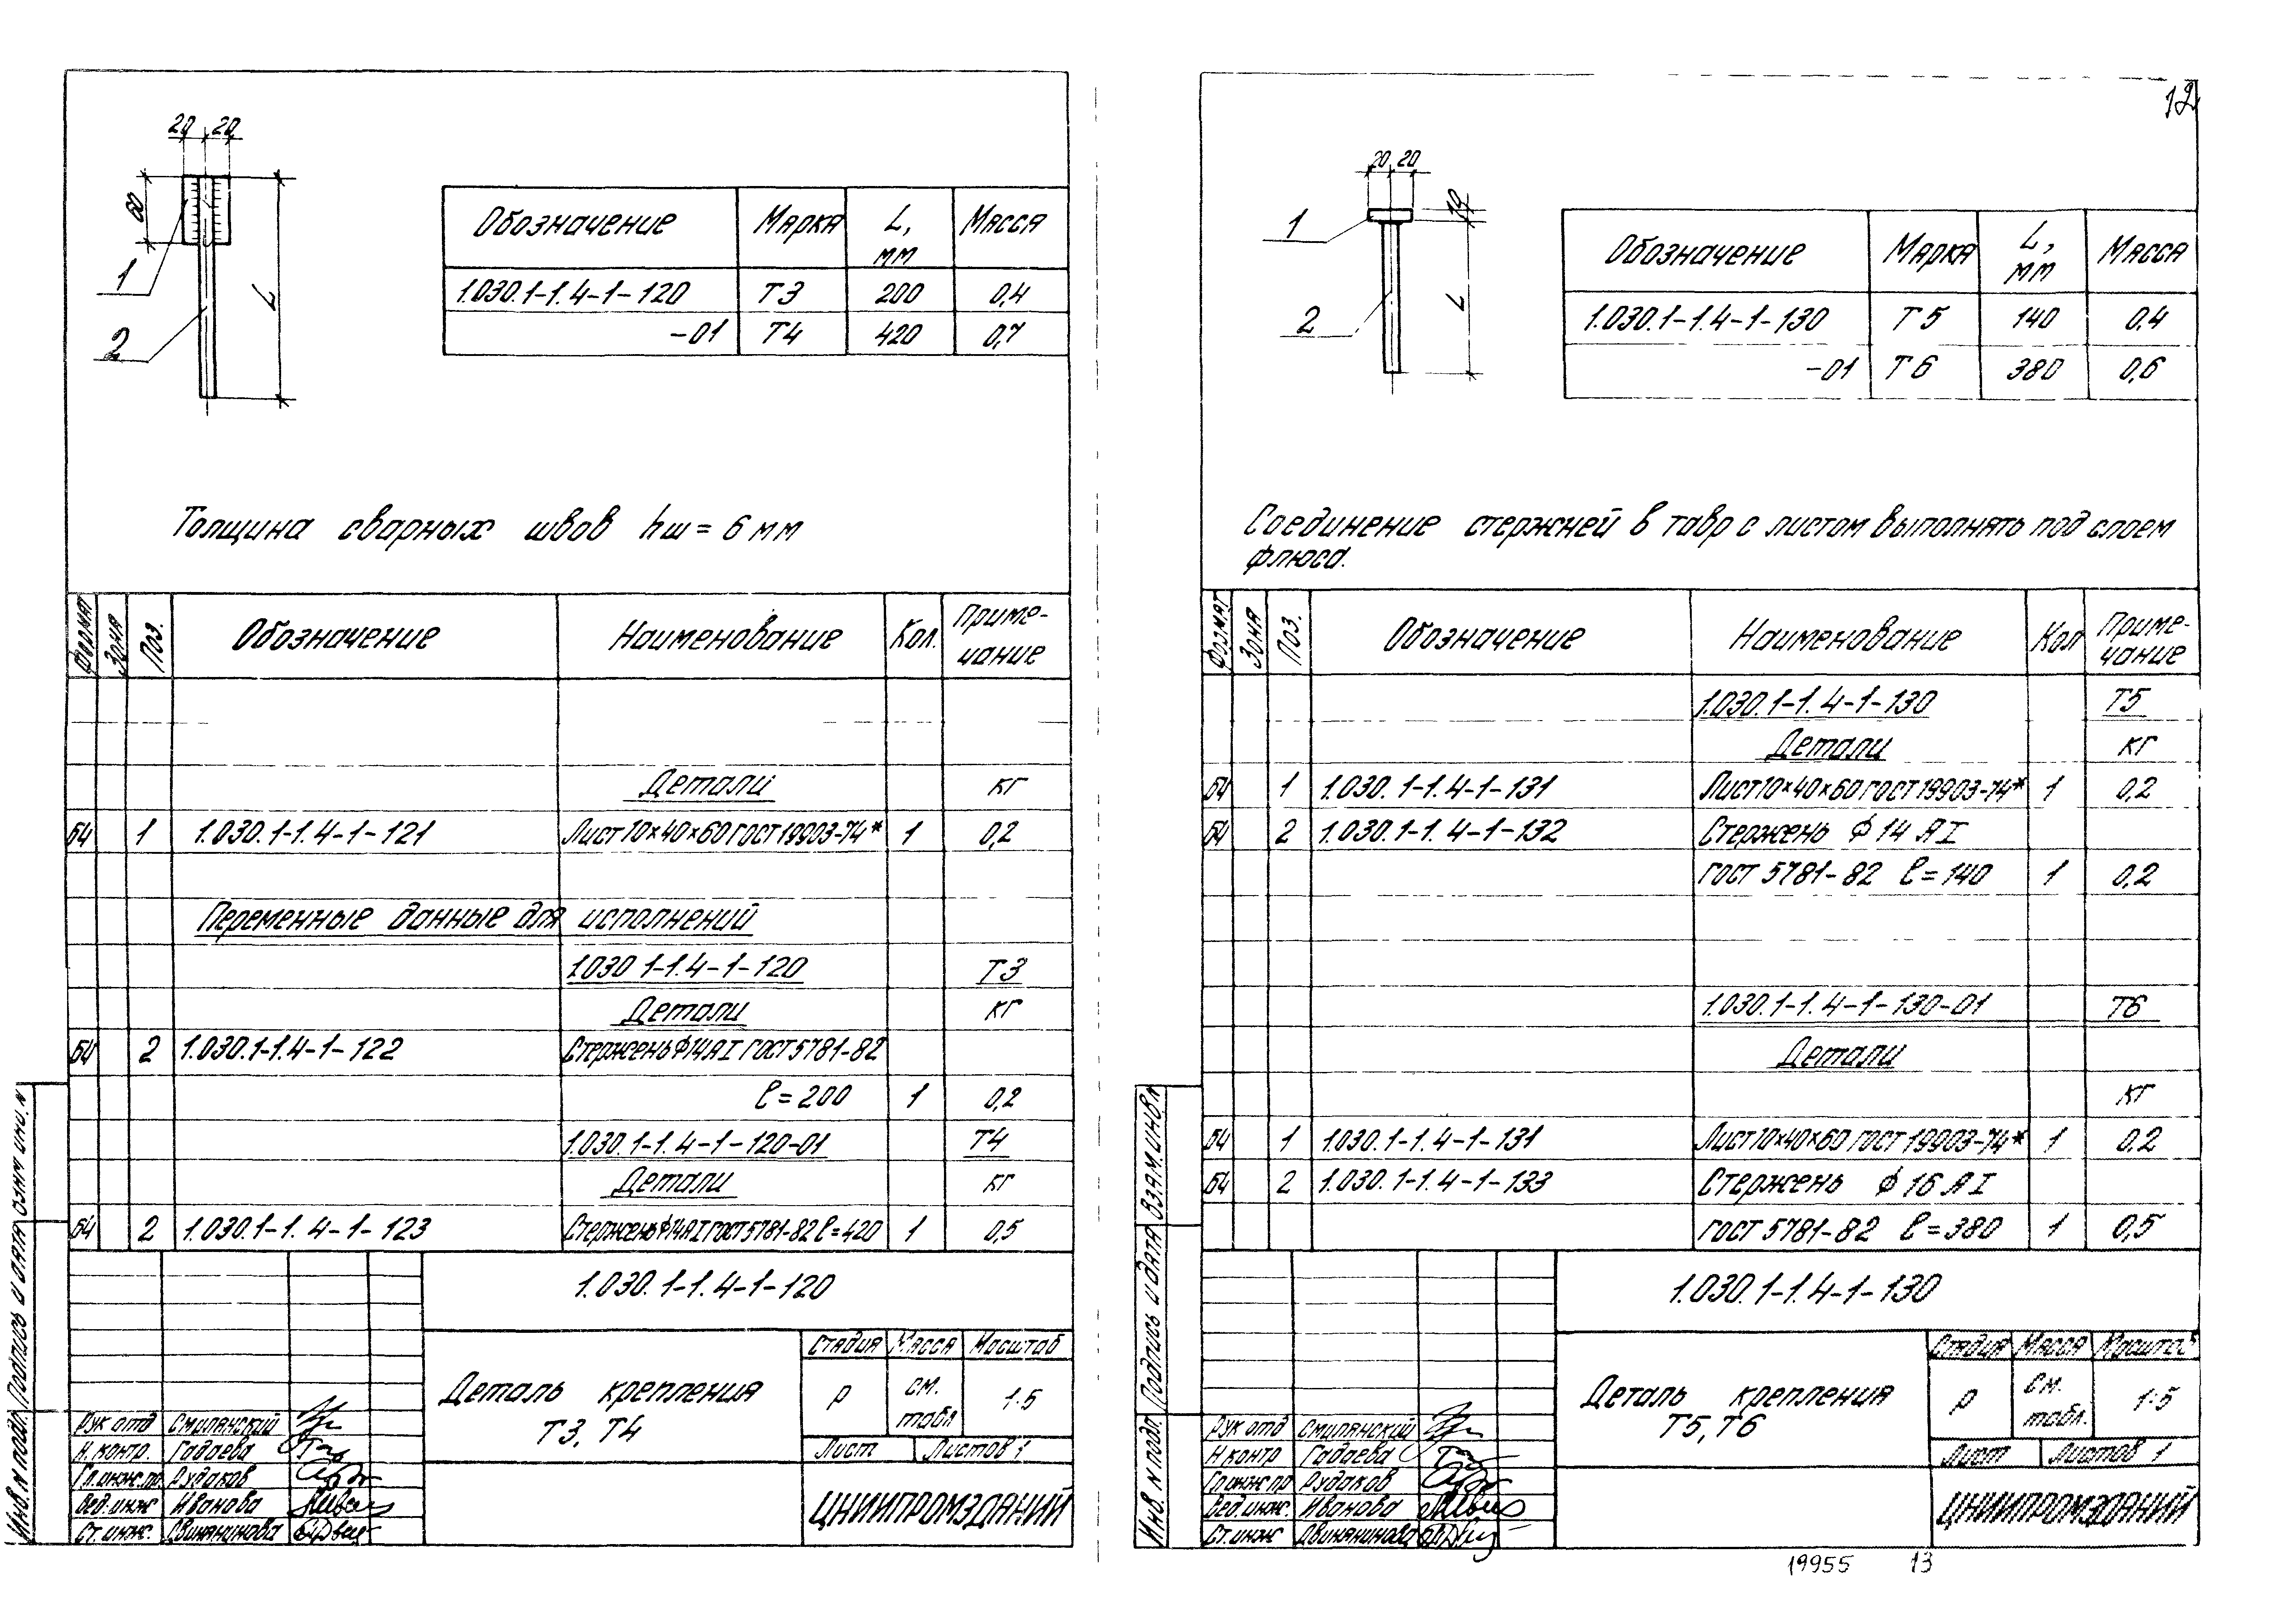 20 20
60
1
2
L
Обозначение Марка L, мм Масса
1.030.1-1.4-1-120 Т3 200 0,4
-01 Т4 420 0,7
Толщина сварных швов hш = 6 мм
Формат Зона Поз. Обозначение Наименование Кол. Приме-
чание
Детали кг
БЧ 1 1.030.1-1.4-1-121 Лист 10×40×60 ГОСТ 19903-74* 1 0,2
Переменные данные для исполнений
1.030 1-1.4-1-120 Т3
Детали кг
БЧ 2 1.030.1-1.4-1-122 Стержень ф14 А I ГОСТ 5781-82
ℓ = 200 1 0,2
1.030.1-1.4-1-120-01 Т4
Детали кг
БЧ 2 1.030.1-1.4-1-123 Стержень ф14 А I ГОСТ 5781-82 ℓ=420 1 0,5
1.030.1-1.4-1-120
Деталь крепления
Т3, Т4
Стадия Масса Масштаб
Р см. табл 1:5
Лист Листов 1
ЦНИИПРОМЗДАНИЙ
Рук отд Смилянский
Н. контр. Гадаева
Гл.инж.пр Рудаков
Вед.инж Иванова
Ст.инж. Двинянинова
Инв. N подл. Подпись и дата
12
20 20
10
1
2
L
Обозначение Марка L, мм Масса
1.030.1-1.4-1-130 Т5 140 0,4
-01 Т6 380 0,6
Соединение стержней в тавр с листом выполнять под слоем
флюса.
Формат Зона Поз. Обозначение Наименование Кол Приме-
чание
1.030.1-1.4-1-130 Т5
Детали кг
БЧ 1 1.030.1-1.4-1-131 Лист 10×40×60 ГОСТ 19903-74* 1 0,2
БЧ 2 1.030.1-1.4-1-132 Стержень ф 14 А I
ГОСТ 5781-82 ℓ = 140 1 0,2
1.030.1-1.4-1-130-01 Т6
Детали
кг
БЧ 1 1.030.1-1.4-1-131 Лист 10×40×60 ГОСТ 19903-74* 1 0,2
БЧ 2 1.030.1-1.4-1-133 Стержень ф 16 А I
ГОСТ 5781-82 ℓ=380 1 0,5
1.030.1-1.4-1-130
Деталь крепления
Т5, Т6
Стадия Масса Масштаб
Р см. табл. 1:5
Лист Листов 1
ЦНИИПРОМЗДАНИЙ
Рук отд Смилянский
Н контр Гадаева
Гл.инж.пр Рудаков
Вед.инж. Иванова
Ст.инж Двинянинова
Инв. N подл. Подпись и дата Взам.инв N
19955 13